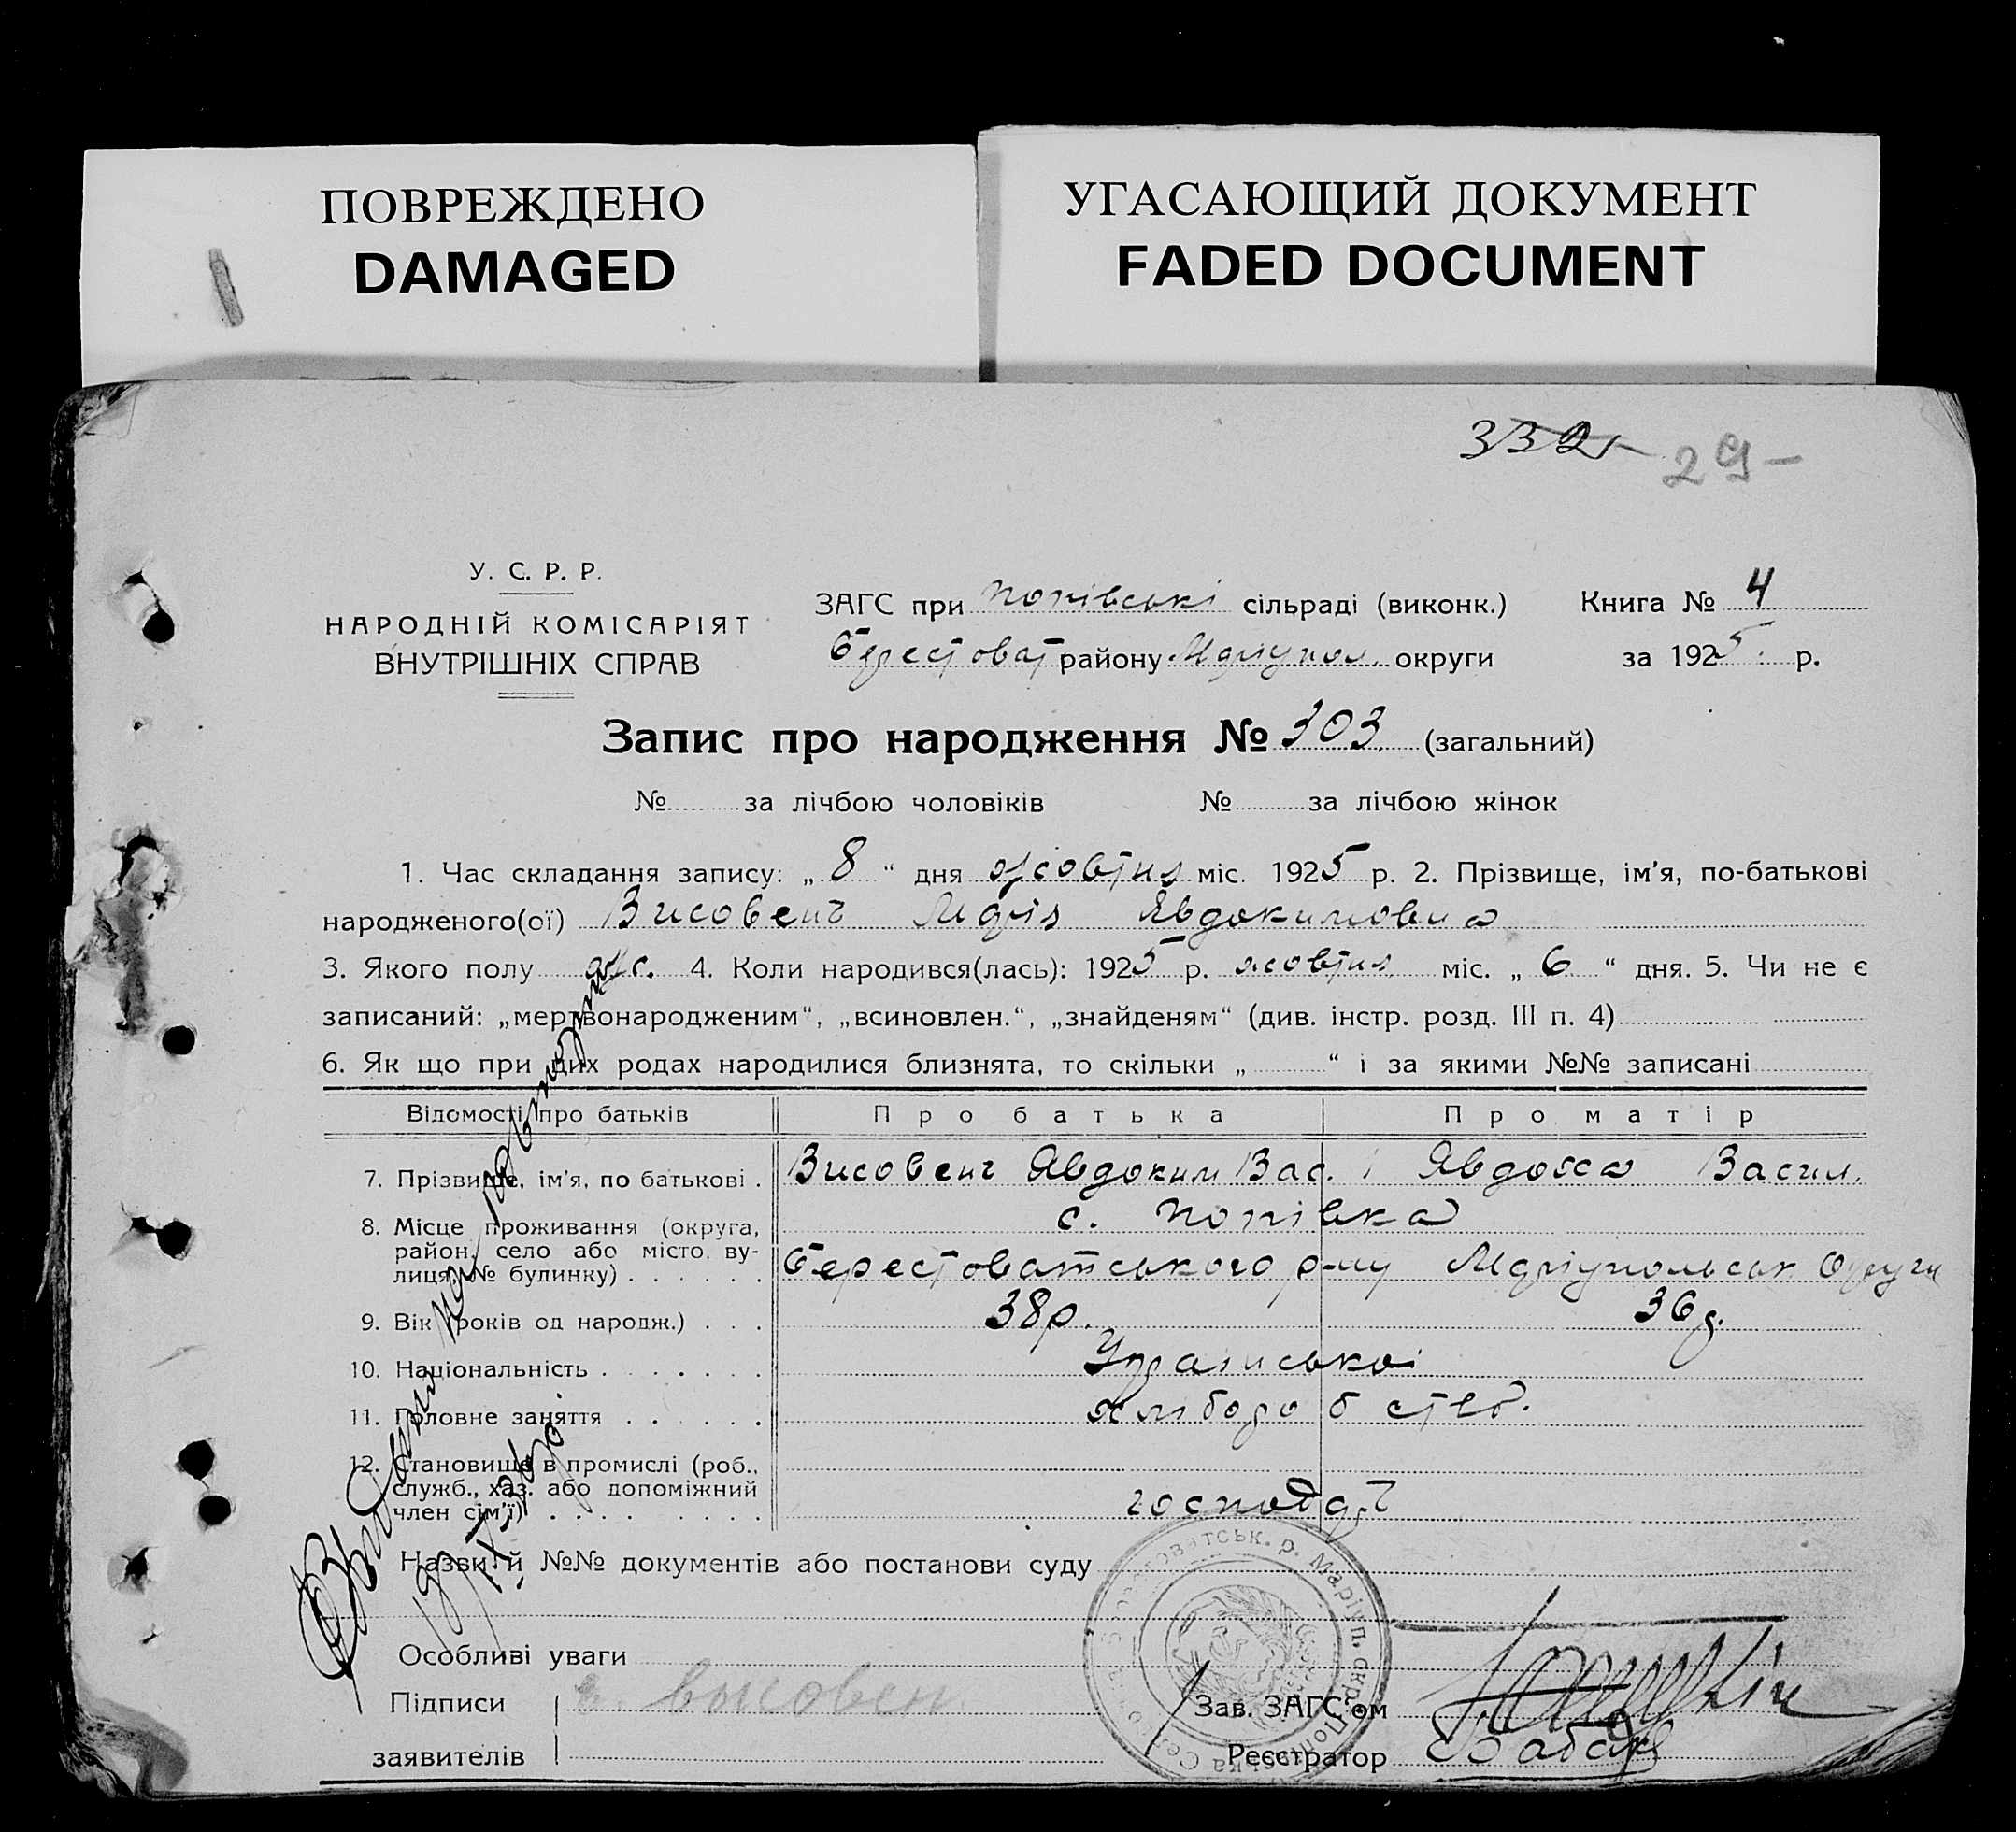 ПОВРЕЖДЕНО
DAMAGED
УГАСАЮЩИЙ ДОКУМЕНТ
FADED DOCUMENT
332 29
У. С. Р. Р.
НАРОДНІЙ КОМІСАРІЯТ
ВНУТРІШНІХ СПРАВ
ЗАГС при Попівські сільраді (виконк.)
Берестоват району Маріупол. округи
Книга № 4
за 1925 р.
Запис про народження № 303 (загальний)
№ за лічбою чоловіків № за лічбою жінок
1. Час складання запису: „ 8 “ дня жовтня міс. 1925 р. 2. Прізвище, ім'я, по-батькові
народженого(ої) Висовень Марія Явдокимовна
3. Якого полу ж. 4. Коли народився(лась): 1925 р. жовтня міс. „ 6 “ дня. 5. Чи не є
записаний: „мертвонародженим“, „всиновлен.“, „знайденям“ (див. інстр. розд. III п. 4)
6. Як що при цих родах народилися близнята, то скільки „ “ і за якими №№ записані
Відомості про батьків Про батька Про матір
7. Прізвище, ім'я, по батькові . Висовень Явдоким Вас. і Явдоха Васил.
8. Місце проживання (округа, район, село або місто, вулиця, № будинку) . . . . . . с. Попівка
Берестоватського р-ну Маріупольськ Округи
9. Вік (років од народж.) . . . 38р. 36р.
10. Національність . . . . . . . Українські
11. Головне заняття . . . . . . хлібороб ство.
12. Становище в промислі (роб., служб., хаз. або допоміжний член сім'ї) . . . . . . . . господар
Назви й №№ документів або постанови суду
Особливі уваги
Підписи Висовен
заявителів
Зав. ЗАГС'ом
Реєстратор
Берестоватськ. р. Маріуп. окр.